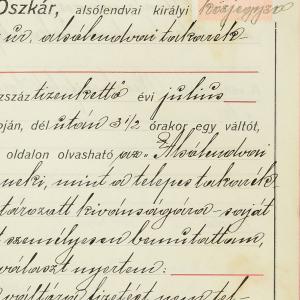 Oszkár, alsólendvai királyi közjegyző
úr, alsólendvai takarék-
száztizenkettő évi július
ján, dél után 3 1/2 órakor egy váltót,
oldalon olvasható „Alsólendvai
neki, mint a telepes takarék
tározott kivánságára - saját
személyesen bemutattam,
választ nyertem: